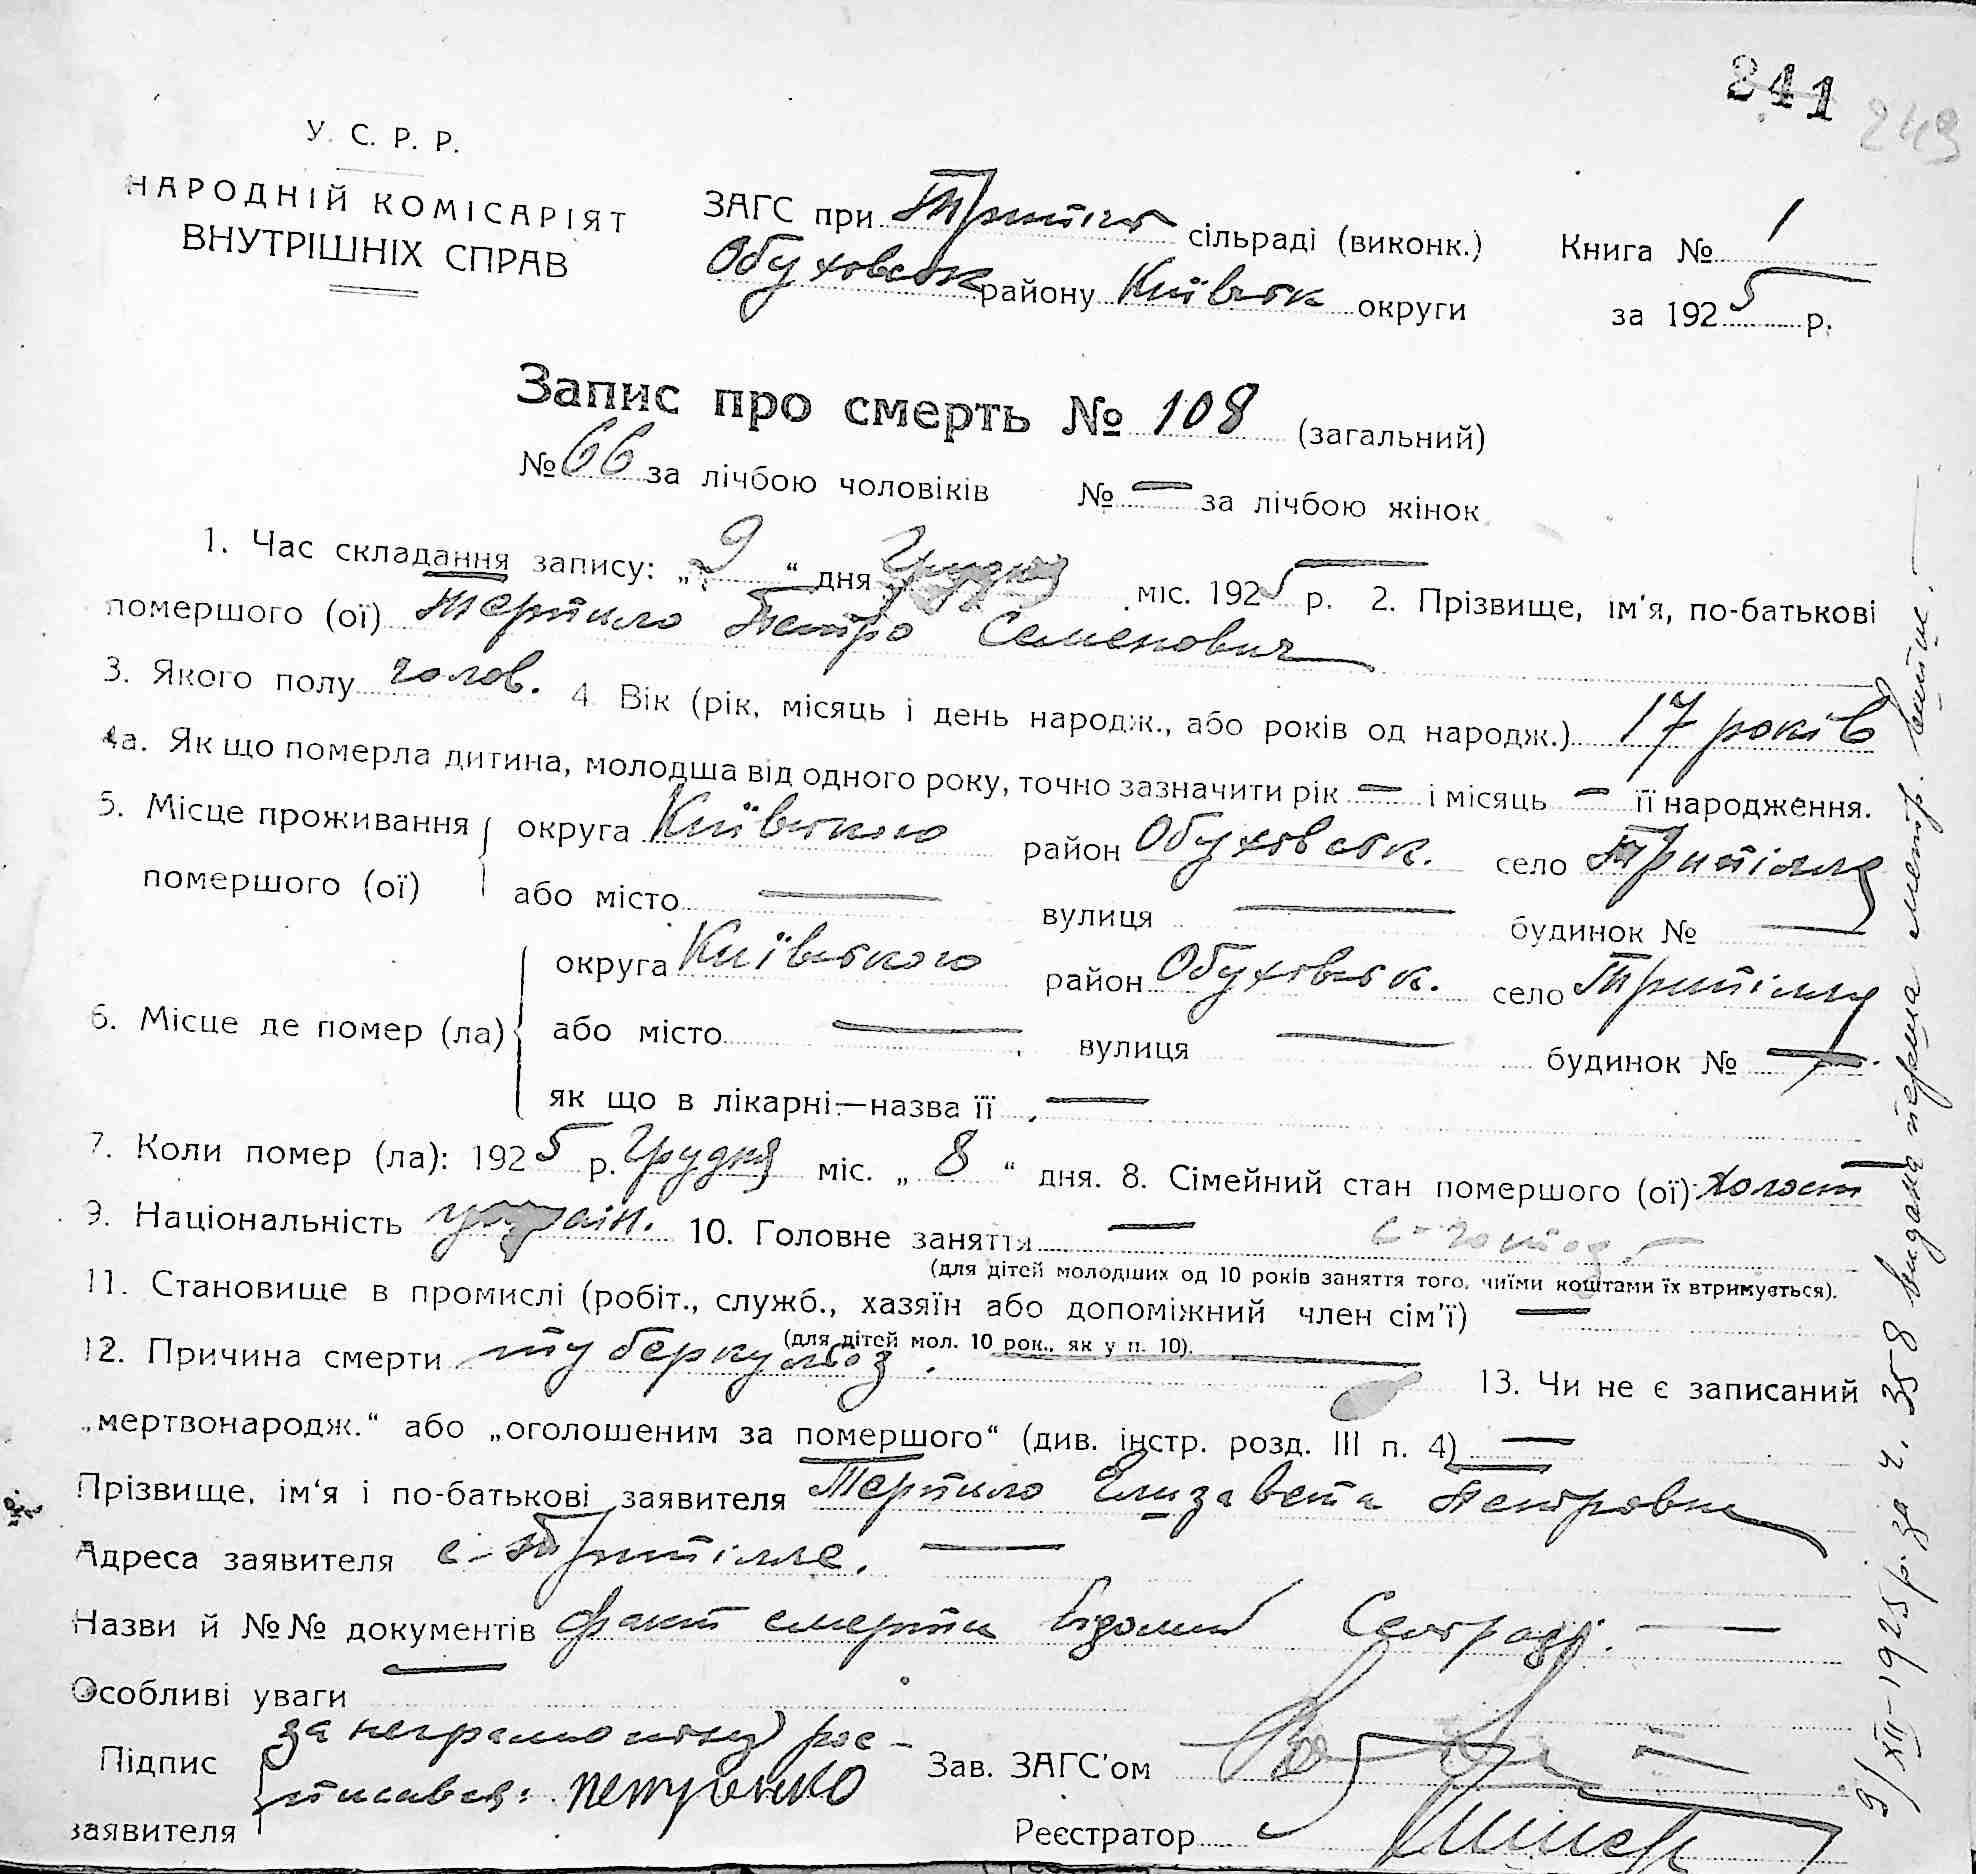 241 243
У. С. Р. Р.
НАРОДНІЙ КОМІСАРІЯТ
ВНУТРІШНІХ СПРАВ
ЗАГС при Трипіль сільраді (виконк.) Книга № 1
Обуховськ району Київськ округи за 1925 р.
Запис про смерть № 108 (загальний)
№ 66 за лічбою чоловіків № — за лічбою жінок
1. Час складання запису: „9“ дня Грудня міс. 1925 р. 2. Прізвище, ім'я, по-батькові
помершого (ої) Терпило Петро Семенович
3. Якого полу голов. 4 Вік (рік, місяць і день народж., або років од народж.) 17 років
4а. Як що померла дитина, молодша від одного року, точно зазначити рік — і місяць — її народження.
5. Місце проживання округа Київського район Обуховськ. село Трипілля
помершого (ої) або місто — вулиця — будинок № —
округа Київського район Обуховськ. село Трипілля
6. Місце де помер (ла) або місто — вулиця — будинок № —
як що в лікарні—назва її —
7. Коли помер (ла): 1925 р. Грудня міс. „8“ дня. 8. Сімейний стан помершого (ої) холост
9. Національність україн. 10. Головне заняття —
(для дітей молодших од 10 років заняття того, чиїми коштами їх втримується).
11. Становище в промислі (робіт., служб., хазяїн або допоміжний член сім'ї) —
(для дітей мол. 10 рок., як у п. 10).
12. Причина смерти туберкульоз. — 13. Чи не є записаний
„мертвонародж.“ або „оголошеним за помершого“ (див. інстр. розд. III п. 4) —
Прізвище, ім'я і по-батькові заявителя Терпило Єлизавета Петровна
Адреса заявителя с. Трипілле. —
Назви й №№ документів факт смерти відомий Сельраді. —
Особливі уваги
Підпис заявителя за неграмотну рос-
писався: Петренко
Зав. ЗАГС'ом
Реєстратор
9/XII-1925 р. за ч. 358 видана перша метр. витис. —